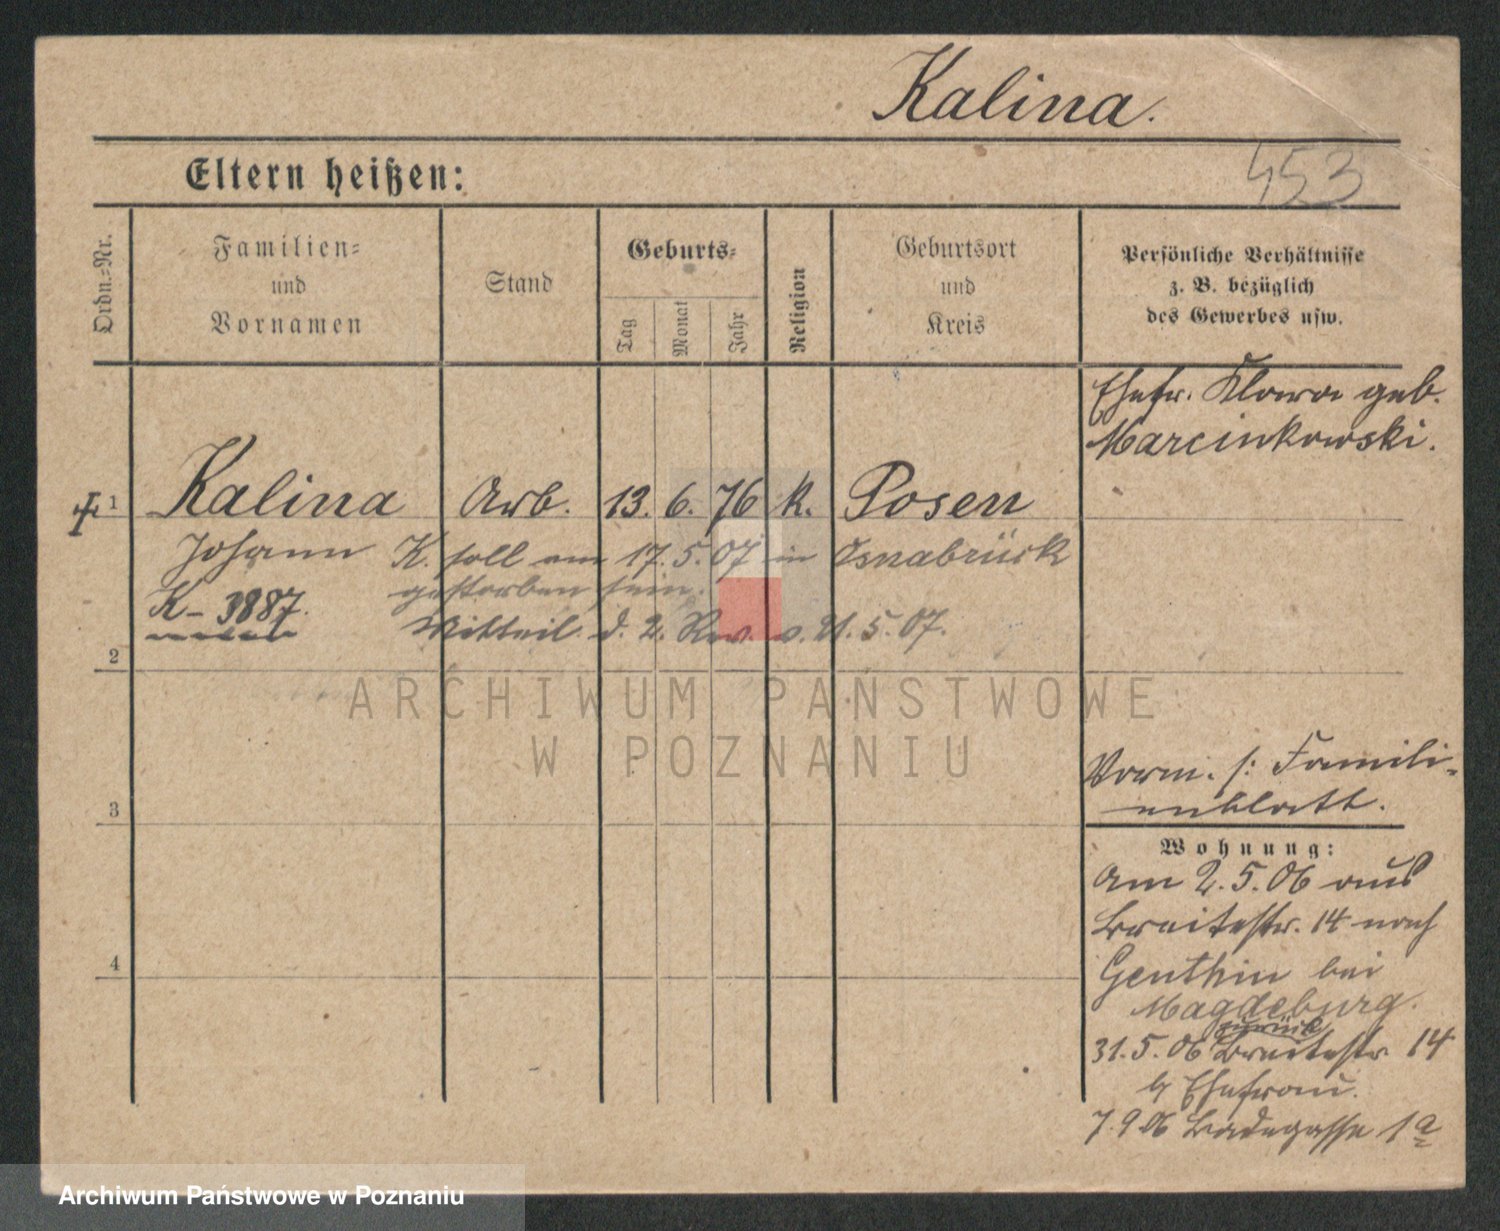 Kalina.
Eltern heißen:
453
Ordn.=Nr.
Familien=
und
Vornamen
Stand
Geburts=
Tag
Monat
Jahr
Religion
Geburtsort
und
Kreis
Persönliche Verhältnisse
z. B. bezüglich
des Gewerbes usw.
Ehefr. Klara geb.
Marcinkowski.
1 Kalina Arb. 13. 6. 76 k. Posen
Johann K. soll am 17. 5. 07 in Osnabrück
gestorben sein.
K - 3887.
Mitteil. d. 2. Rev. v. 21. 5. 07.
2
ARCHIWUM PAŃSTWOWE
W POZNANIU
3
4
Vorm. s: Famili-
enblatt.
Wohnung:
Am 2. 5. 06 aus
Breitestr. 14 nach
Genthin bei
Magdeburg.
zurück
31. 5. 06 Breitestr 14
b/ Ehefrau.
7. 9. 06 Badegasse 1a
Archiwum Państwowe w Poznaniu